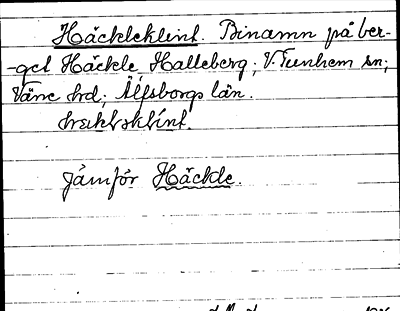 Häckleklint. Binamn på ber-
-get Häckle Halleberg; V. Tunhem sn;
Väne hrd; Älfsborgs län.
Jämför Häckle.